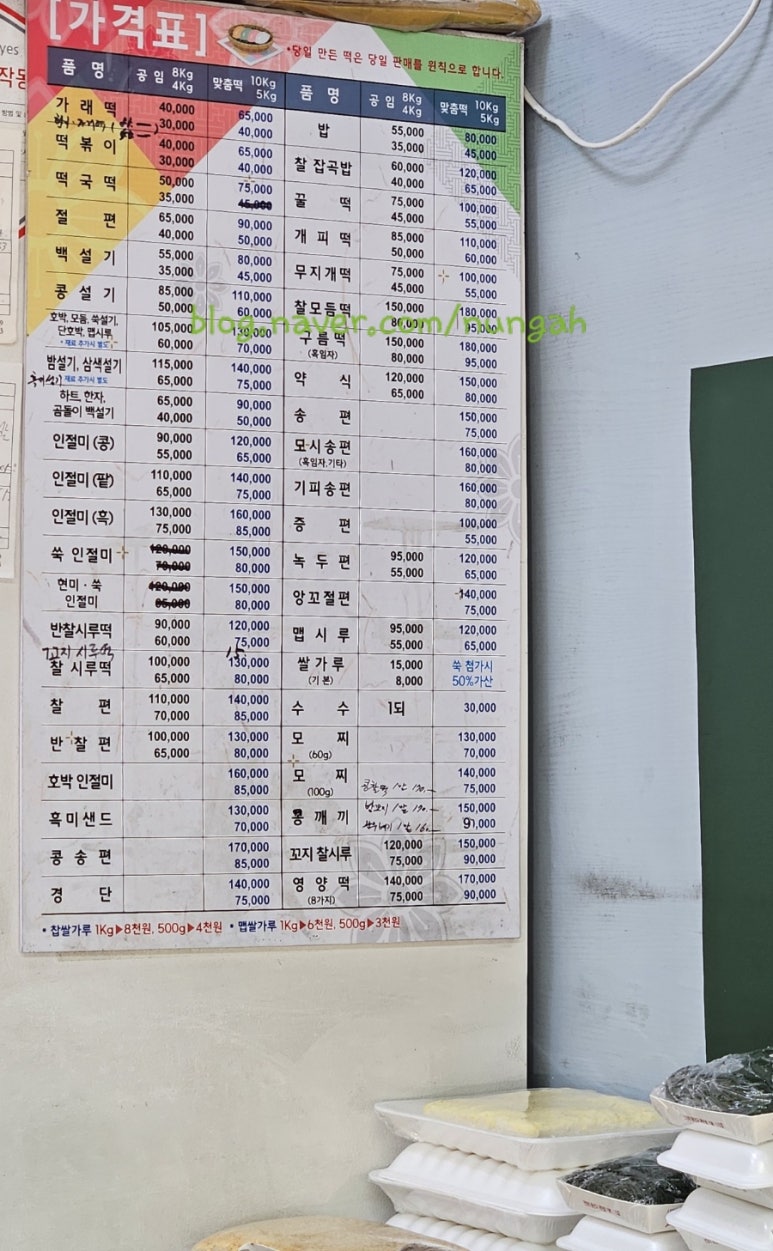 [가격표]
•당일 만든 떡은 당일 판매를 원칙으로 합니다.
품 명 공 임 8Kg 4Kg 맞춤떡 10Kg 5Kg
가 래 떡 40,000 30,000 65,000 40,000
떡 볶 이 40,000 30,000 65,000 40,000
떡 국 떡 50,000 35,000 75,000 45,000
절 편 65,000 40,000 90,000 50,000
백 설 기 55,000 35,000 80,000 45,000
콩 설 기 85,000 50,000 110,000 60,000
호박, 모듬, 쑥설기, 단호박, 맵시루, • 재료 추가시 별도 105,000 60,000 130,000 70,000
밤설기, 삼색설기 재료 추가시 별도 115,000 65,000 140,000 75,000
하트, 한자, 곰돌이 백설기 65,000 40,000 90,000 50,000
인절미 (콩) 90,000 55,000 120,000 65,000
인절미 (팥) 110,000 65,000 140,000 75,000
인절미 (흑) 130,000 75,000 160,000 85,000
쑥 인절미 150,000 80,000
현미 · 쑥 인절미 150,000 80,000
반찰시루떡 90,000 60,000 120,000 75,000
찰 시루떡 100,000 65,000 130,000 80,000
찰 편 110,000 70,000 140,000 85,000
반 찰 편 100,000 65,000 130,000 80,000
호박 인절미 160,000 85,000
흑미샌드 130,000 70,000
콩 송 편 170,000 85,000
경 단 140,000 75,000
품 명 공 임 8Kg 4Kg 맞춤떡 10Kg 5Kg
밥 55,000 35,000 80,000 45,000
찰 잡곡밥 60,000 40,000 120,000 65,000
꿀 떡 75,000 45,000 100,000 55,000
개 피 떡 85,000 50,000 110,000 60,000
무지개떡 75,000 45,000 100,000 55,000
찰모듬떡 150,000 80,000 180,000 95,000
구름떡 (흑임자) 150,000 80,000 180,000 95,000
약 식 120,000 65,000 150,000 80,000
송 편 150,000 75,000
모시송편 (흑임자,기타) 160,000 80,000
기피송편 160,000 80,000
증 편 100,000 55,000
녹 두 편 95,000 55,000 120,000 65,000
앙꼬절편 140,000 75,000
맵 시 루 95,000 55,000 120,000 65,000
쌀가루 (기 본) 15,000 8,000 쑥 첨가시 50%가산
수 수 1되 30,000
모 찌 (60g) 130,000 70,000
모 찌 (100g) 140,000 75,000
통 깨 끼 150,000
꼬지 찰시루 120,000 75,000 150,000 90,000
영 양 떡 (8가지) 140,000 75,000 170,000 90,000
• 찹쌀가루 1Kg▶8천원, 500g▶4천원 • 맵쌀가루 1Kg▶6천원, 500g▶3천원
blog.naver.com/nungah